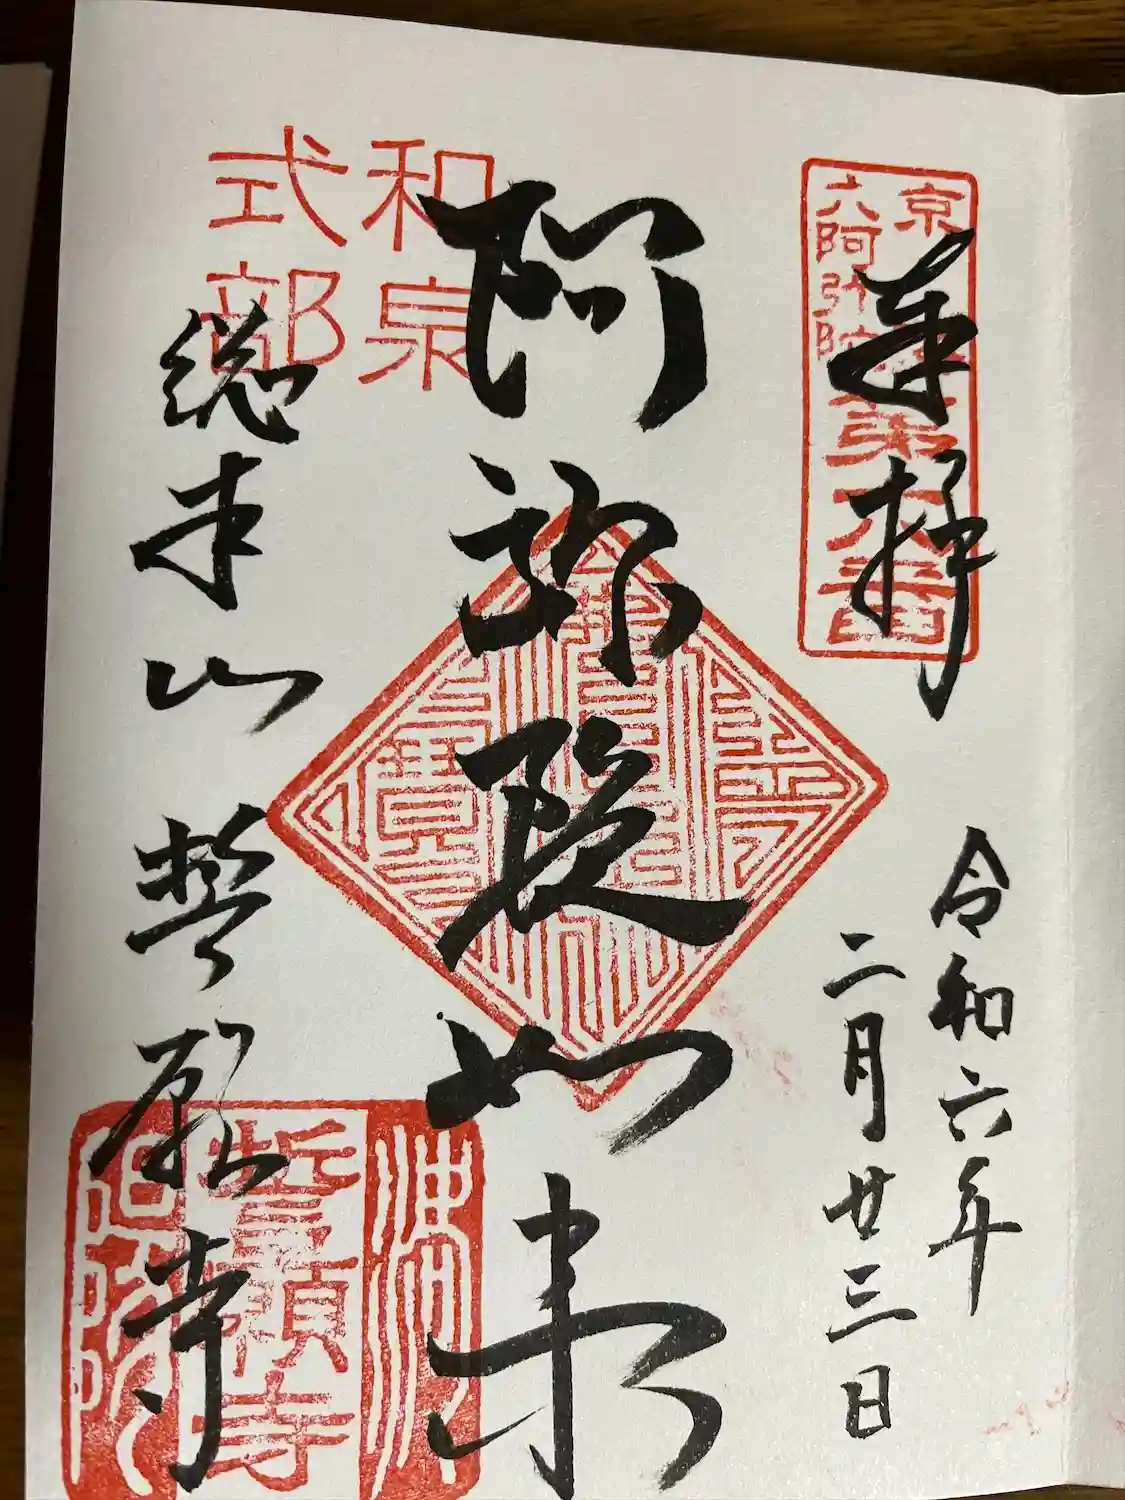 奉拝
令和六年
二月廿三日
阿弥陀如来
総本山 誓願寺
京
六阿弥陀
第六番
和泉
式部
誓願寺